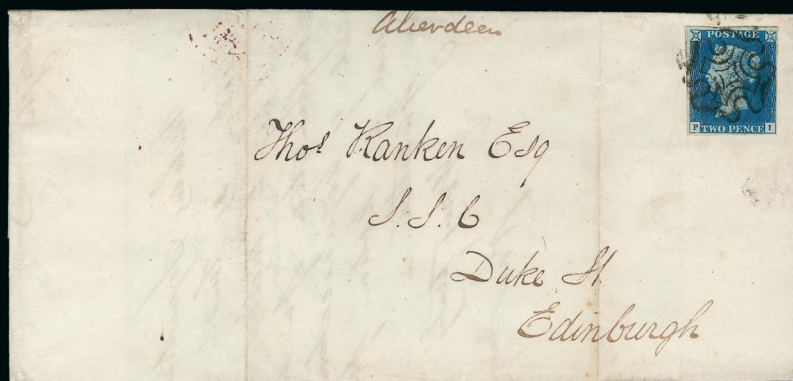 Aberdeen
POSTAGE
P TWO PENCE I
Thos Ranken Esq
S. S. C
Duke St
Edinburgh